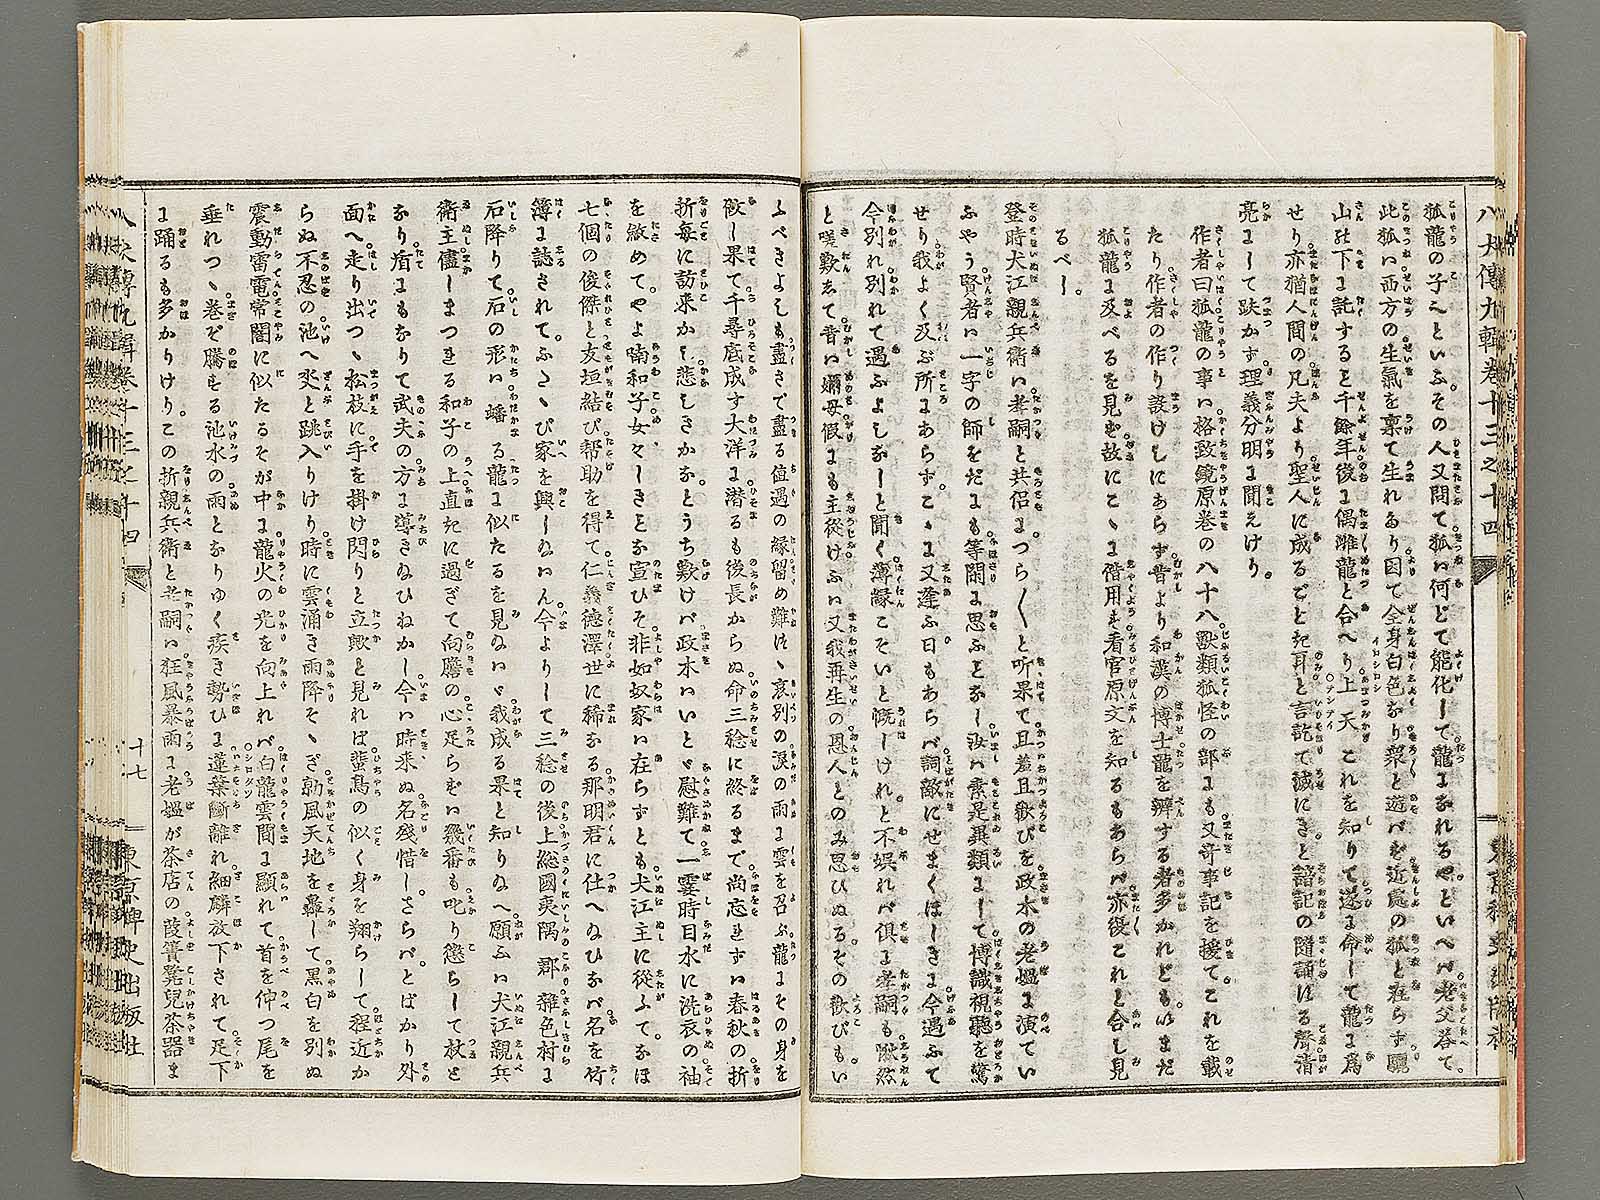 八犬傳九輯卷十三之十四
狐龍の子へといふ。その人又問て狐い何どて能化して龍になれるやといへバ老父答て。
此狐い西方の生氣を禀て生れあり因て全身白色なり衆と遊バず近處の狐と在らず驪
山の下に託すること千餘年後に偶雌龍と合へり上天これを知りて遂に命して龍に爲
せり亦猶人間の凡夫より聖人に成るごとき耳と言訖て滅にきと諳記の隨誦する聲清
亮にして趺かず理義分明に聞えけり。
作者曰狐龍の事い格致鏡原巻の八十八獸類狐怪の部にも又奇事記を援てこれを載
たり作者の作り設けしにあらず昔より和漢の博士龍を辨する者多かれどもいまだ
狐龍に及べるを見ず故にこゝに借用す看官原文を知るもあらバ亦復これと合し見
るべし。
登時犬江親兵衛い孝嗣と共侶につら〳〵と听果て且羞且歓びを政木の老媼に演てい
ふやう賢者い一字の師をだにも等閑に思ふことなし汝ハ素是異類にして博識視聽を驚
せり我よく及ぶ所にあらずこゝに又逢ふ日もあらバ詞敵にせまくほしきに今遇ふて
今別れ別れて遇ふよしなしと聞く薄縁こそいと慨しけれと不娯れバ倶に孝嗣も愀然
と嗟歎えて昔い嬭母假にも主從けふい又我再生の恩人とのみ思ひぬるその歓びもい
ふべきよしも盡さで盡る値遇の縁留め難けゝ哀別の涙の雨に雲を召ぶ龍にその身を
做し果て千尋底成す大洋に潜るも後長からぬ命三稔に終るまで尚忘れずい春秋の折
折毎に訪來かし悲しきかなとうち歎けバ政木いいとゞ慰難て一霎時目水に洗衣の袖
を斂めてやよ喃和子女々しきことな宣ひそ非如奴家い在らずとも犬江主に從ふてなほ
七個の俊傑と友垣結び帮助を得て仁義德澤世に稀なる那明君に仕へぬひなバ名を竹
簿に誌されてふたゝび家を興しぬいん今よりして三稔の後上総國夷隅郡雜色村に
石降りて石の形い蟠る龍に似たるを見ぬいゞ我成る果と知りぬへ願ふい犬江親兵
衛主儘しまつれる和子の上直きに過ぎて向膽の心足らずい幾番も叱り懲らして杖と
なり盾にもなりて武夫の方に導きぬひねかし今い時來ぬ名殘惜しさらバとばかり外
面へ走り出つゝ松枝に手を掛け閃りと立歟と見れば蜚鳥の似く身を翔らして程近か
らぬ不忍の池へ㸚と跳入りけり時に雲涌き雨降そゝぎ勃風天地を轟して黒白を別ぬ
震動雷電常闇に似たるそが中に龍火の光を向上れバ白龍雲間に顯れて首を伸つ尾を
垂れつゝ巻ぞ騰する池水の雨となりゆく疾き勢ひに蓮葉斷離れ細麟放下されて足下
に踊るも多かりけり。この折親兵衛と孝嗣い狂風暴雨に老媼が茶店の葭簀凳兒茶器ま
八犬傳九輯卷十三之十四
十七
東京稗史出版社